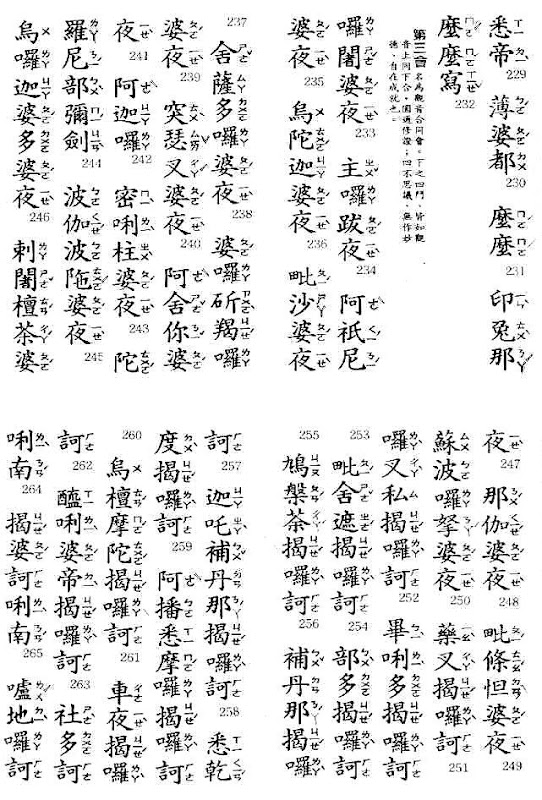 悉帝 229 薄婆都 230 麼麼 231 印兔那
麼麼寫 232
第三會 名為觀音合同會。下之四門,皆如觀
音上同下合,圓通修證;四不思議,無作妙
德,自在成就也。
囉闍婆夜 233 主囉跋夜 234 阿祇尼
婆夜 235 烏陀迦婆夜 236 毗沙婆夜
237 舍薩多囉婆夜 238 婆囉斫羯囉
婆夜 239 突瑟叉婆夜 240 阿舍你婆
夜 241 阿迦囉 242 密唎柱婆夜 243 陀
羅尼部彌劍 244 波伽波陁婆夜 245
烏囉迦婆多婆夜 246 剌闍檀茶婆
夜 247 那伽婆夜 248 毗條怛婆夜 249
蘇波囉拏婆夜 250 藥叉揭 251
囉叉私揭囉訶 252 畢唎多揭囉訶
253 毗舍遮揭囉訶 254 部多揭囉訶
255 鳩槃茶揭囉訶 256 補丹那揭囉
訶 257 迦吒補丹那揭囉訶 258 悉乾
度揭囉訶 259 阿播悉摩囉揭囉訶
260 烏檀摩陀揭囉訶 261 車夜揭囉
訶 262 醯唎婆帝揭囉訶 263 社多囉訶
唎南 264 揭婆訶唎南 265 嚧地囉訶